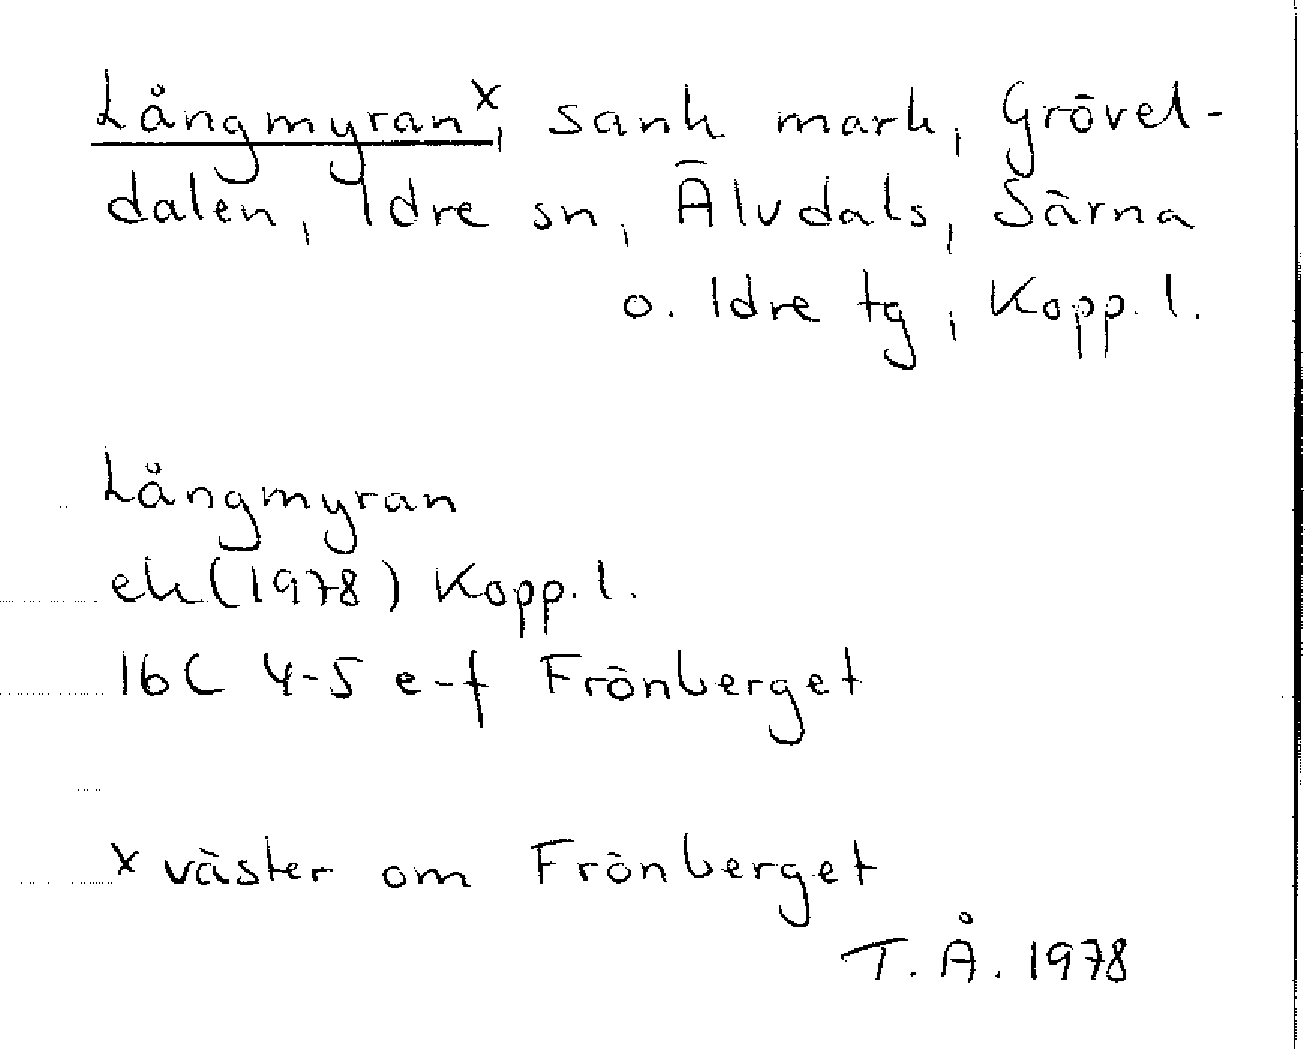 Långmyran x, sank mark, Grövel-
dalen, Idre sn, Älvdals, Särna
o. Idre tg, Kopp. l.
Långmyran
ek (1978) Kopp. l.
16C 4-5 e-f Frönberget
x väster om Frönberget
T. Å. 1978